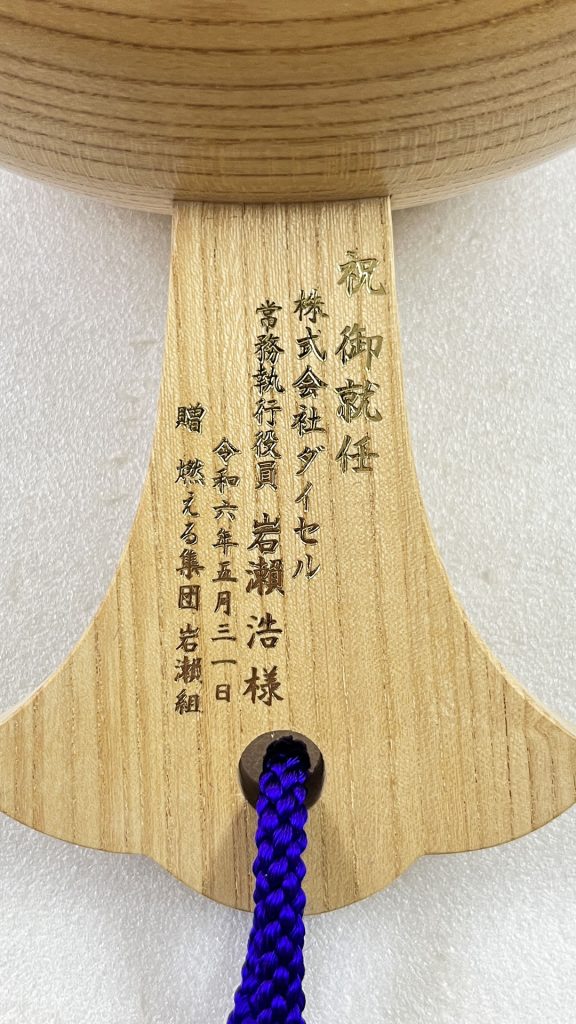 祝 御就任
株式会社ダイセル
常務執行役員 岩瀬 浩 様
令和六年五月三一日
贈 燃える集団 岩瀬組